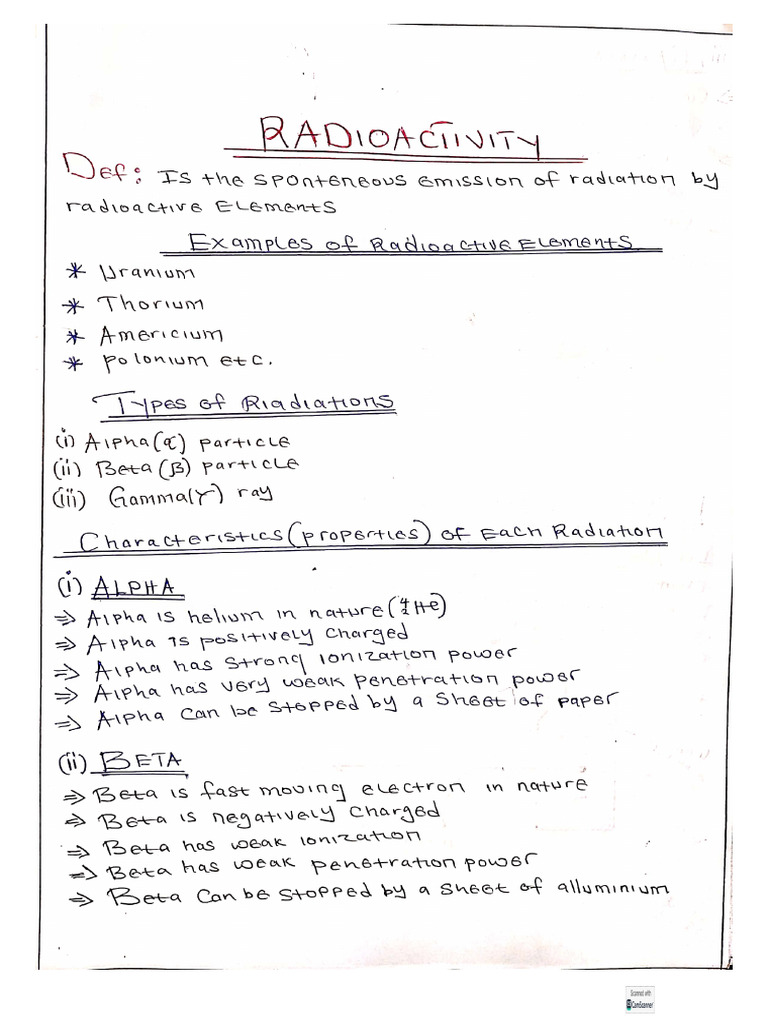 RADIOACTIVITY
Def: Is the sponteneous emission of radiation by
radioactive Elements
Examples of Radioactive Elements
* Uranium
* Thorium
* Americium
* Polonium etc.
Types of Riadiations
(i) Alpha (α) particle
(ii) Beta (β) particle
(iii) Gamma (γ) ray
Characteristics (properties) of Each Radiation
(i) ALPHA
⇒ Alpha is helium in nature (⁴₂He)
⇒ Alpha is positively charged
⇒ Alpha has strong ionization power
⇒ Alpha has very weak penetration power
⇒ Alpha can be stopped by a sheet of paper
(ii) BETA
⇒ Beta is fast moving electron in nature
⇒ Beta is negatively charged
⇒ Beta has weak ionization
⇒ Beta has weak penetration power
⇒ Beta can be stopped by a sheet of alluminium
Scanned with
CamScanner